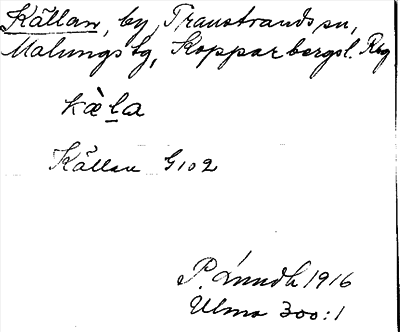 Källan, by, Transtrands sn,
Malungs tg, Kopparbergs l. Reg
kæ̀l̲a
Källan G102
P. Lundh 1916
Ulma 300:1